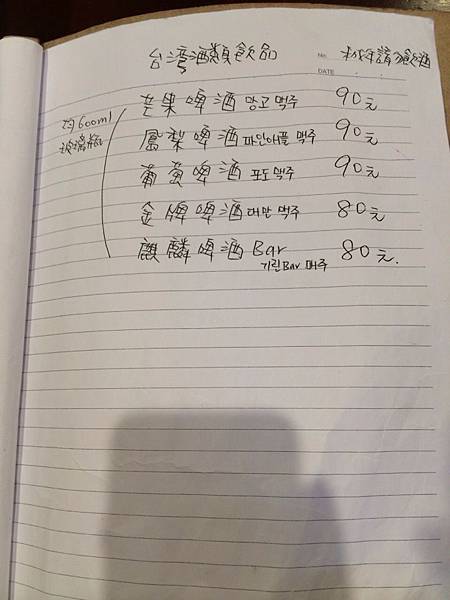 台灣酒類飲品
No.
DATE
均600ml
玻璃瓶
芒果啤酒 망고 맥주 90元
鳳梨啤酒 파인애플 맥주 90元
葡萄啤酒 포도 맥주 90元
金牌啤酒 대만 맥주 80元
麒麟啤酒 Bar 80元.
기린 Bar 맥주